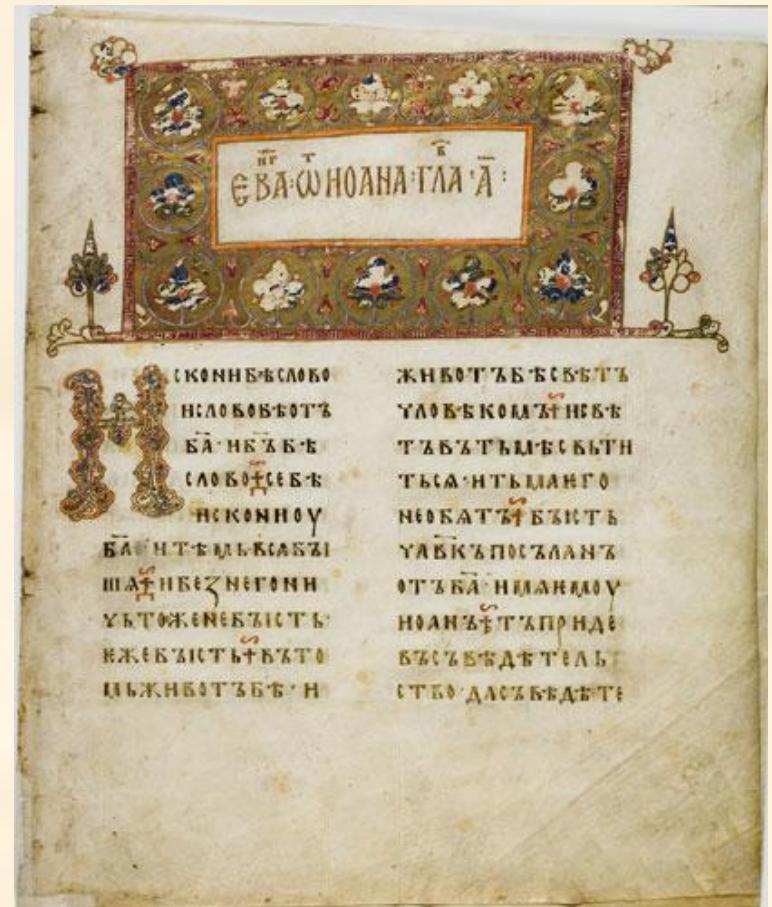 ЕВАНГ ѾТ ИОАНА ГЛАВ А
Искони бѣ слово
и слово бѣ отъ
ба҃ · и бъ҃ бѣ
слово се бѣ
искони оу
ба҃ · и тѣмь вся бы
ша и без него ни
чьтоже не бысть ·
еже бысть въ то
мь животъ бѣ · и
животъ бѣ свѣтъ
чловѣкомъ и свѣ
тъ въ тьмѣ свьти
ться · и тьма ѥго
не обятъ бысть
чл҃вкъ посъланъ
отъ ба҃ · имя ѥмоу
иоанъ тъ приде
въ съвѣдѣтель
ство · да съвѣдѣте